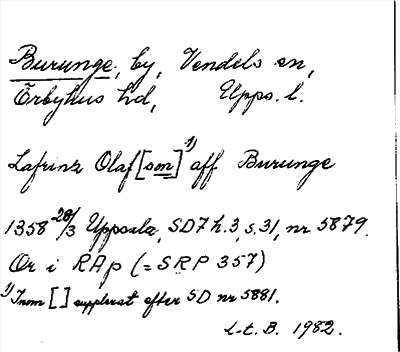 Burunge, by, Vendels sn,
Örbyhus hd, Upps. l.
Lafrinz Olaf[som]¹⁾ aff Burunge
1358 28/3 Uppsala, SD7 h.3, s.31, nr 5879.
Or i RAp (=SRP 357)
¹⁾ Inom [ ] supplerat efter SD nr 5881.
L.t. B. 1982.